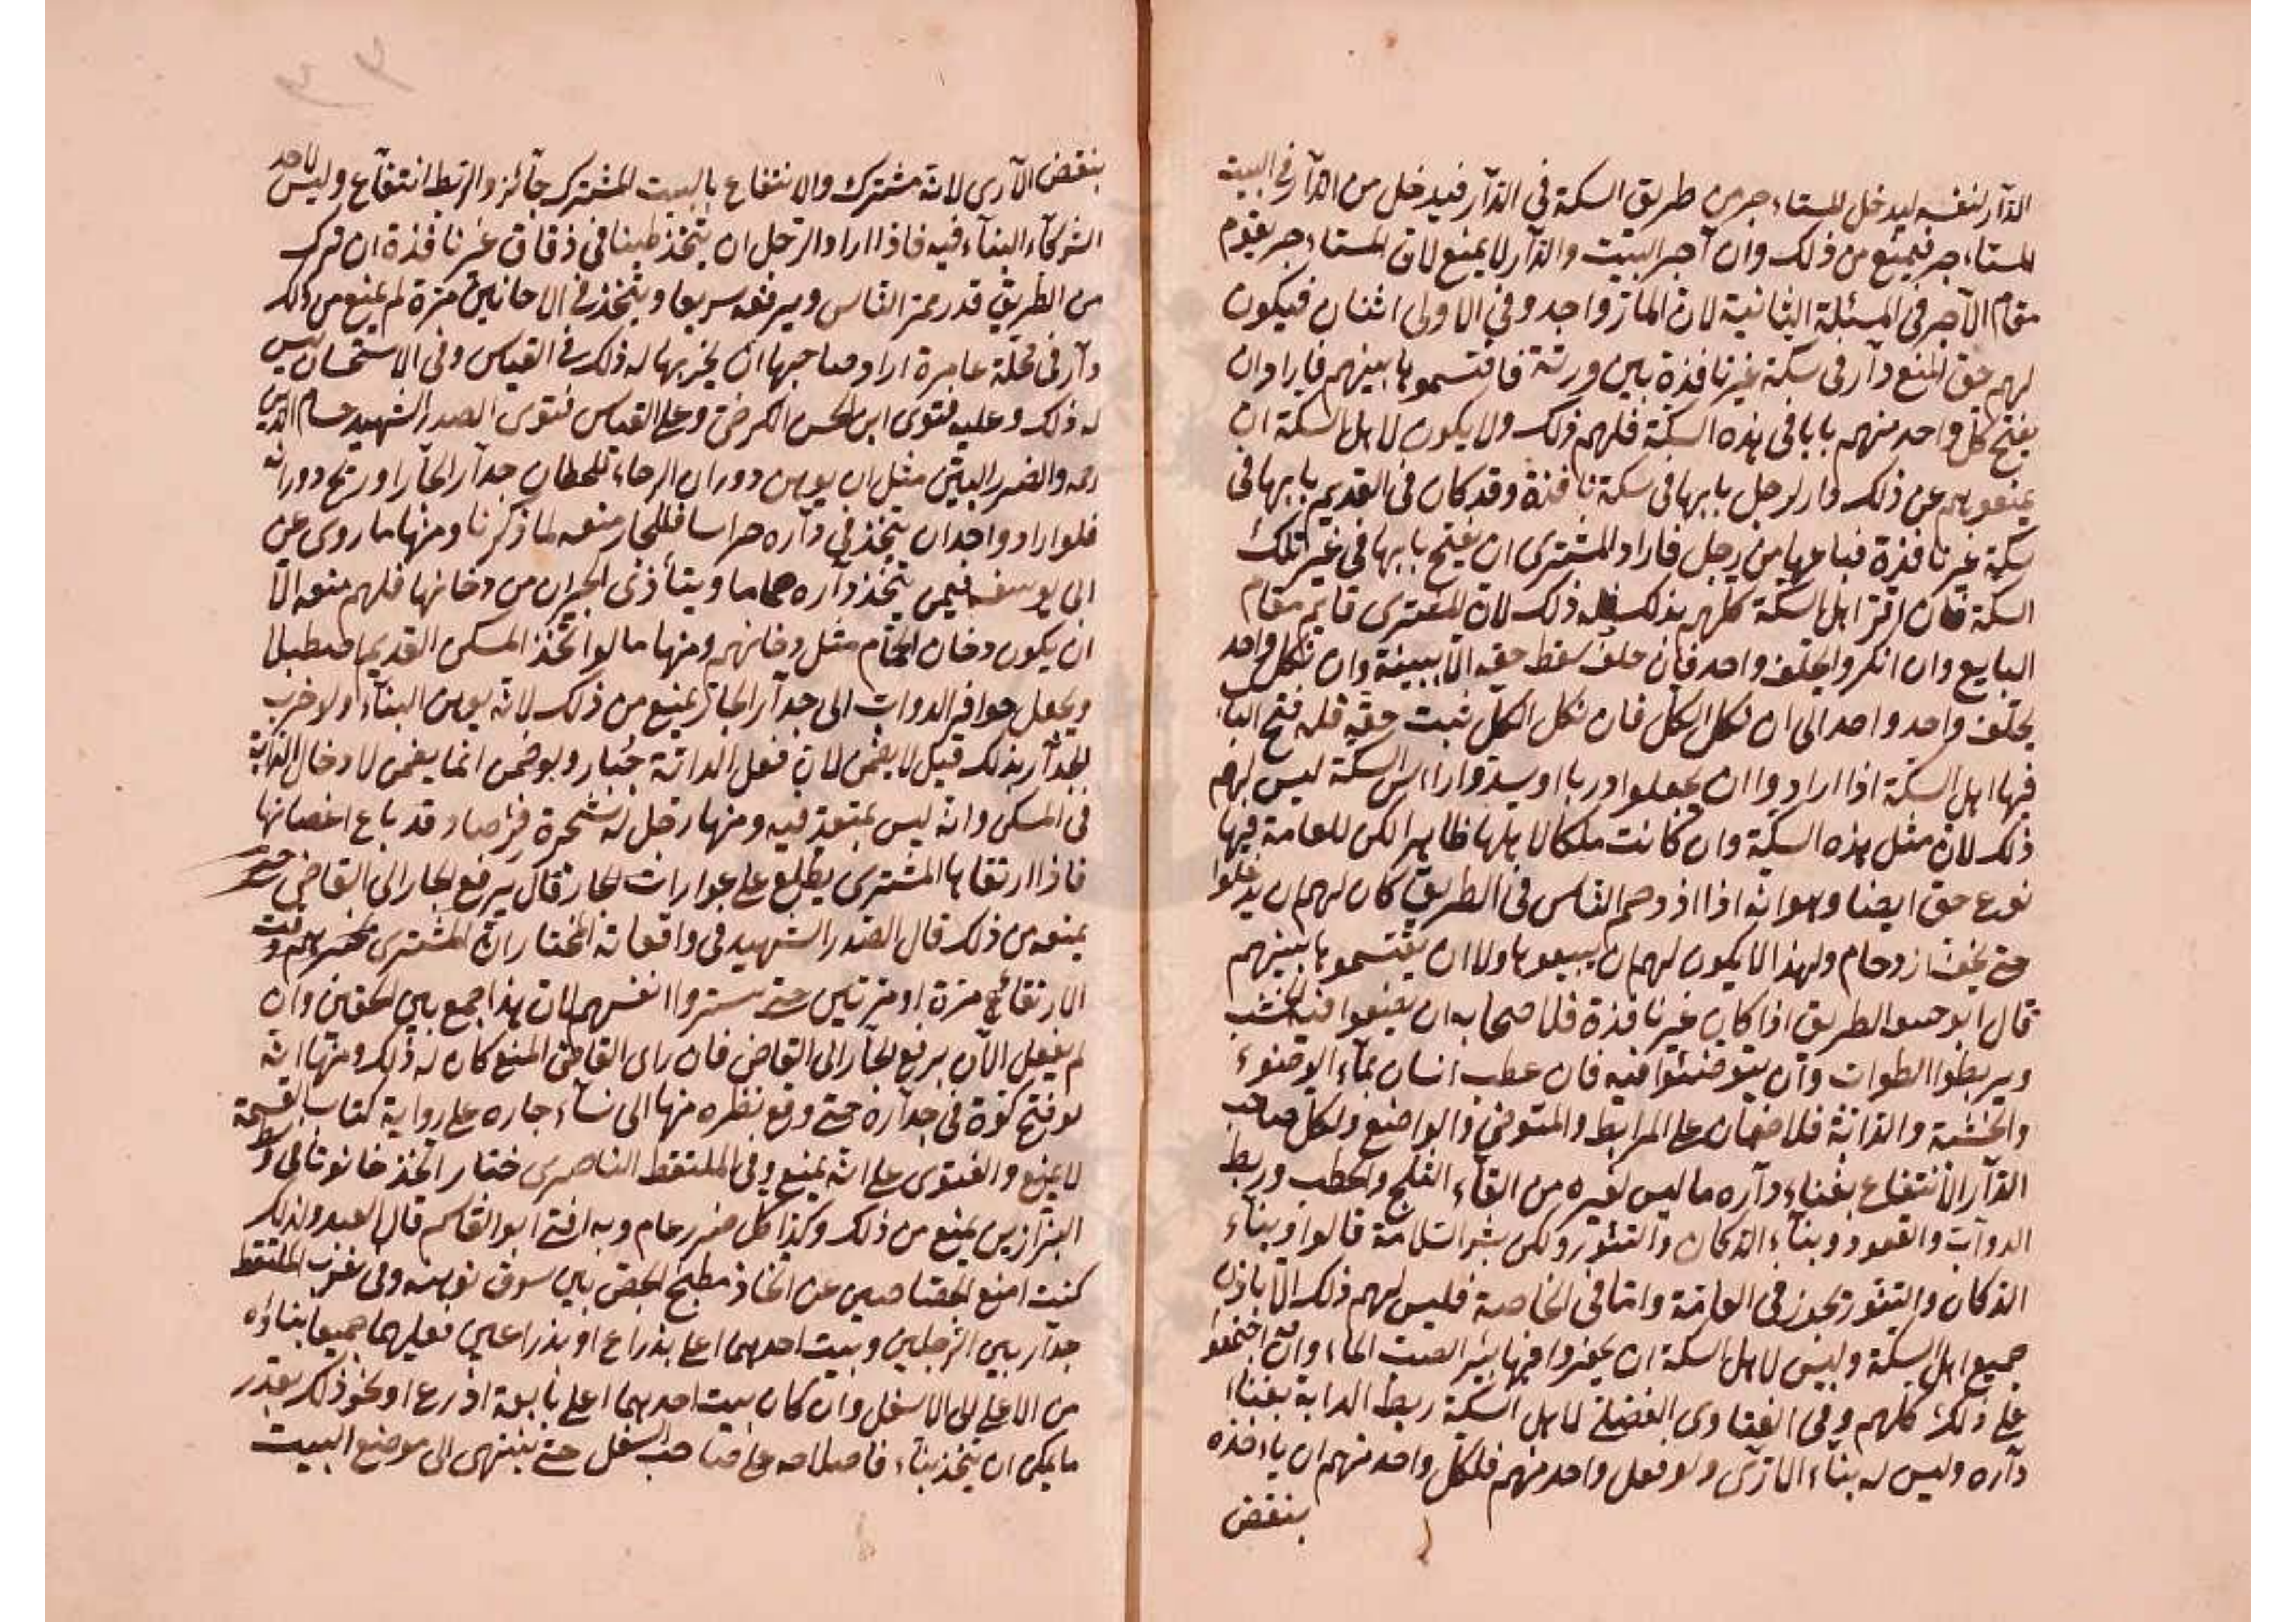 الدّار لنفسه ليدخل المستاءجر من طريق السكة في الدّار فيدخل من الدّار في البيت
المستاءجر فيمنع من ذلك وان آجر البيت والدّار لا يمنع لان المستاءجر يقوم
مقام الآجر في المسئلة الثانية لان المارّ واحد وفي الاولى اثنان فيكون
لهم حق المنع دآر في سكة غير نافذة بين ورثة فاقتسموها بينهم فاراد ان
يفتح كلّ واحد منهم بابا في هذه السكّة فلهم ذلك ولا يكون لاهل السكة ان
يمنعوهم عن ذلك دار لرجل بابها في سكة نافذة وقد كان في القديم بابها في
سكة غير نافذة فباعها من رجل فاراد المشترى ان يفتح بابها في غير تلك
السكة فان اقرّ اهل السكّة كلهم بذلك فله ذلك لان المشترى قايم مقام
البايع وان انكروا يحلف واحد فان حلف سقط حقه الّا ببينة وان نكل واحد
يحلف واحد واحد الى ان نكل الكلّ فان نكل الكلّ ثبت حقه فله فتح الباب
فيها اهل السكّة اذا ارادوا ان يجعلوا دربا او يسدّوا راءس السكّة ليس لهم
ذلك لان مثل هذه السكّة وان كانت ملكا لاهلها ظاهرا لكن للعامة فيها
نوع حق ايضا وهو انه اذا ازدحم النّاس في الطريق كان لهم ان يدخلوا
حتى يخف ازدحام ولهذا لا يكون لهم ان يبيعوها ولا ان يقتسموها بينهم
قال ابو حـ الطريق اذا كان غير نافذة فلاصحابه ان يضعوا فيه الخشب
ويربطوا الطوات وان يتوضئوا فيه فان عطب انسان بمآء الوضوء
والخشبة والدّابّة فلا ضمان على المرابط والمتوضئ والواضع ولكلّ صاحب
الدّار الانتفاع بفناء دآره ما ليس لغيره من القآء الثلج والحطب وربط
الدوآب والقعود وبنآء الدّكان والتنّور ولكن بشرط السّلامة قالوا وبناء
الدّكان والتنّور يجوز في العامّة وامّا في الخاصة فليس لهم ذلك الّا باذن
جميع اهل السكّة وليس لاهل السكة ان يحفروا فيها بئر الصبّ الماء وان اجتمعوا
على ذلك كلهم وفي الفتاوى الفضلى لاهل السكّة ربط الدابة بفناء
دآره وليس له بنآء الآرّى ولو فعل واحد منهم فلكلّ واحد منهم ان ياءخذه
بنقض
بنقض الآرى لانّه مشترك والانتفاع بالبيت المشترك جآئز والربط انتفآع وليس لاحد
الشركآء البنآء فيه فاذا اراد الرّجل ان يتّخذ طينا في زقاق غير نافذة ان ترك
من الطريق قدر ممرّ النّاس ويرفعه سريعا ويتّخذ في الاحانين مرّة لم يمنع من ذلك
دآر في محلّة عامرة اراد صاحبها ان يخربها له ذلك في القياس وفي الاستحسان ليس
له ذلك وعليه فتوى ابى الحسن الكرخىّ وعلى القياس فتوى الصدر الشهيد حسام الدّين
رحمه والضرر البيّن مثل ان يوهن دوران الرحاء للحطان جدآر الجآر او ريح دورانه
فلو اراد واحد ان يتّخذ في دآره حراسا فللجار منعه لما ذكرنا ومنها ما روى عن
ابى يوسف فيمن يتّخذ دآره حماما ويتأذى الجيران من دخانها فلهم منعه الّا
ان يكون دخان الحمّام مثل دخانهم ومنها ما لو اتّخذ المسكن القديم اصطبلا
ويجعل حوافر الدوات الى جدآر الجار يمنع من ذلك لانّه يوهن البنآء ولو خرب
الجدآر بذلك قيل لا يضمن لان فعل الدابّة جبار ولو ضمن انّما يضمن لادخال الدابّة
في المسكن وانّه ليس بمتعد فيه ومنها رجل له شجرة فرصاد قد باع اغصانها
فاذا ارتقاها المشترى يطلع على عوارات الجار قال يرفع الجار الى القاضى حتى
يمنعه من ذلك قال الصّدر الشهيد في واقعاته المختار انّ المشترى يخبرهم وقت
الارتقاع مرّة او مرّتين حتى يستروا انفسهم لان هذا جمع بين الحقين وان
لم يفعل الآن يرفع الجآر الى القاضى فان راى القاضى المنع كان له ذلك ومنها انّه
لو فتح كوّة في جدآره حتى وقع نظره منها الى نسآء جاره على رواية كتاب القسمة
لا يمنع والفتوى على انّه يمنع وفي الملتقط الناصرى ختار اتخذ حانوتا في وسط
البزّازين يمنع من ذلك وكذا كلّ ضرر عام وبه افتى ابو القاسم قال العبد ولذلك
كنت امنع الجصّاصين عن اتّخاذ مطبخ الجصّ بين سوق نوبهنه وفي غرب الملتقط
جدآر بين الرّجلين وبيت احدهما اعلى بذراع او بذراعين فعليهما جميعا بناؤه
من الاعلى الى الاسفل وان كان بيت احدهما اعلى باربعة اذرع او نحو ذلك بقدر
ما يمكن ان يتّخذ بناء فاصلاحه على صاحب السفل حتى ينتهى الى موضع البيت